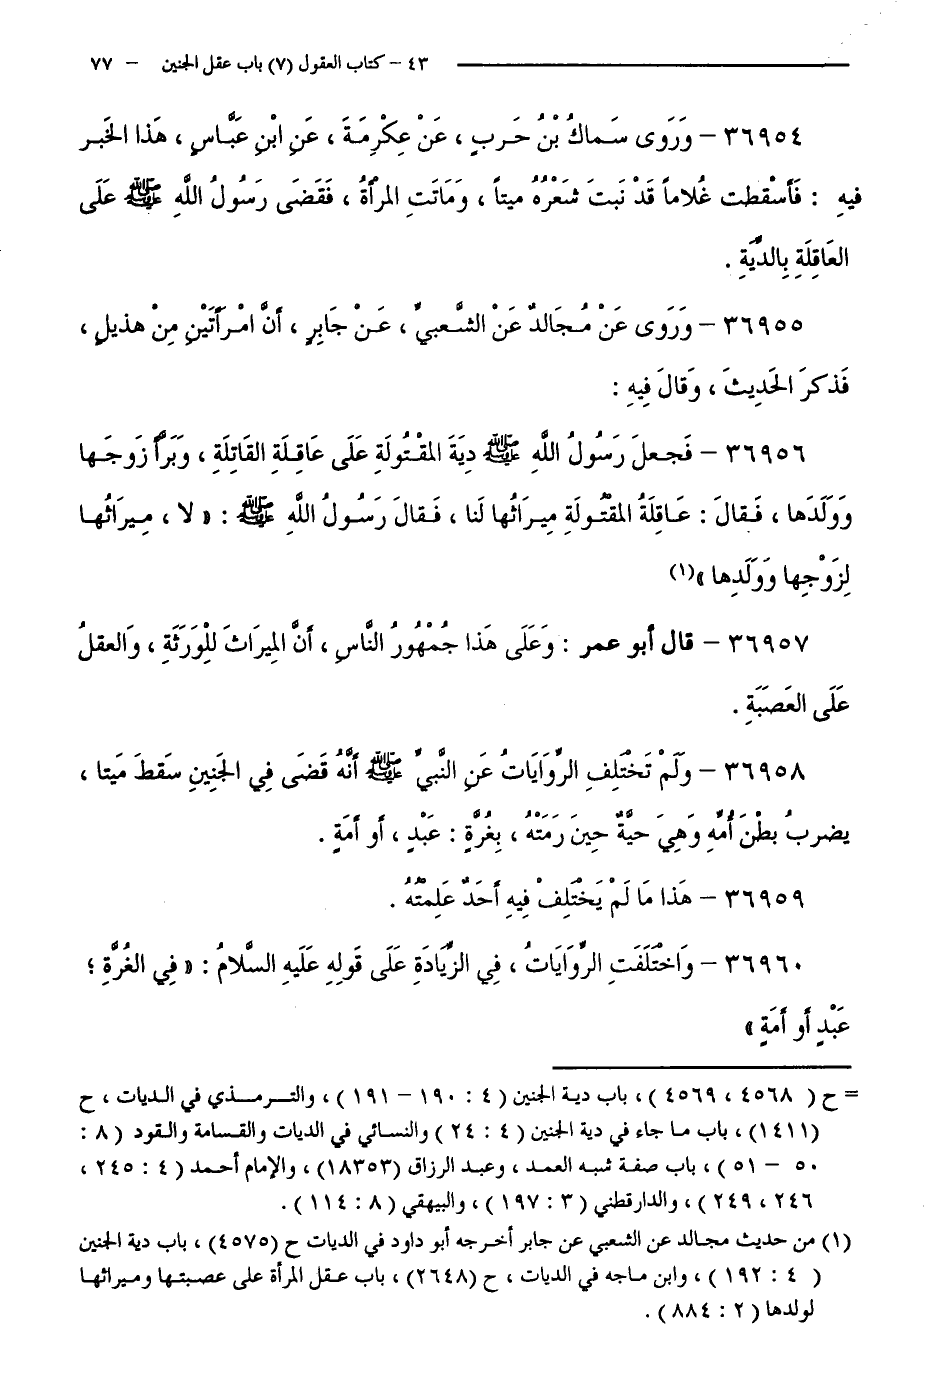 ٤٣ – كتاب العقول (٧) باب عقل الجنين – ٧٧
٣٦٩٥٤ – وَرَوى سَماكُ بْنُ حَربٍ ، عَنْ عِكْرِمَةَ ، عَنِ ابْنِ عَبَّاسٍ ، هَذا الخَبر
فيهِ : فَأَسْقطت غُلاماً قَدْ نَبتَ شَعْرُهُ ميتاً ، وَمَاتَتِ المرأةُ ، فَقَضى رَسُولُ اللَّهِ ﷺ عَلَى
العَاقِلَةِ بِالدِّيَةِ .
٣٦٩٥٥ – وَرَوى عَنْ مُجَالدٌ عَنْ الشَّعبيِّ ، عَنْ جَابِرٍ ، أَنَّ امْرَأَتَيْنِ مِنْ هذيلٍ ،
فَذكرَ الحَدِيثَ ، وَقالَ فِيهِ :
٣٦٩٥٦ – فَجعلَ رَسُولُ اللَّهِ ﷺ دِيَةَ المقْتُولَةِ عَلَى عَاقِلَةِ القَاتِلَةِ ، وَبَرَّأَ زَوجَها
وَوَلَدَها ، فَقالَ : عَاقِلَةُ المقْتُولَةِ مِيرَاثُها لَنا ، فَقالَ رَسُولُ اللَّهِ ﷺ : « لا ، مِيرَاثُها
لِزَوْجِها وَوَلَدِها »(١)
٣٦٩٥٧ – قال أبو عمر : وَعَلَى هَذا جُمْهُورُ النَّاسِ ، أَنَّ المِيرَاثَ لِلْوَرَثَةِ ، وَالعقلُ
عَلَى العَصَبَةِ .
٣٦٩٥٨ – وَلَمْ تَخْتَلِفِ الرِّوَايَاتُ عَنِ النَّبيِّ ﷺ أَنَّهُ قَضَى فِي الجَنِينِ سَقطَ مَيتا ،
يضربُ بطْنَ أُمِّهِ وَهِيَ حيَّةٌ حِينَ رَمَتْهُ ، بِغُرَّةٍ : عَبْدٍ ، أو أَمَةٍ .
٣٦٩٥٩ – هَذا مَا لَمْ يَخْتَلِفْ فِيهِ أَحَدٌ عَلِمتُهُ .
٣٦٩٦٠ – وَاخْتَلَفَتِ الرِّوَايَاتُ ، فِي الزِّيَادَةِ عَلَى قَولِهِ عَلَيهِ السَّلامُ : « فِي الغُرَّةِ ؛
عَبْدٍ أو أَمَةٍ »
= ح ( ٤٥٦٨ ، ٤٥٦٩ ) ، باب دية الجنين ( ٤ : ١٩٠ – ١٩١ ) ، والترمذي في الديات ، ح
(١٤١١) ، باب ما جاء في دية الجنين ( ٤ : ٢٤ ) والنسائي في الديات والقسامة والقود ( ٨ :
٥٠ – ٥١ ) ، باب صفة شبه العمد ، وعبد الرزاق (١٨٣٥٣) ، والإمام أحمد ( ٤ : ٢٤٥ ،
٢٤٦ ، ٢٤٩ ) ، والدارقطني ( ٣ : ١٩٧ ) ، والبيهقي ( ٨ : ١١٤ ) .
(١) من حديث مجالد عن الشعبي عن جابر أخرجه أبو داود في الديات ح (٤٥٧٥) ، باب دية الجنين
( ٤ : ١٩٢ ) ، وابن ماجه في الديات ، ح (٢٦٤٨) ، باب عقل المرأة على عصبتها وميراثها
لولدها ( ٢ : ٨٨٤ ) .